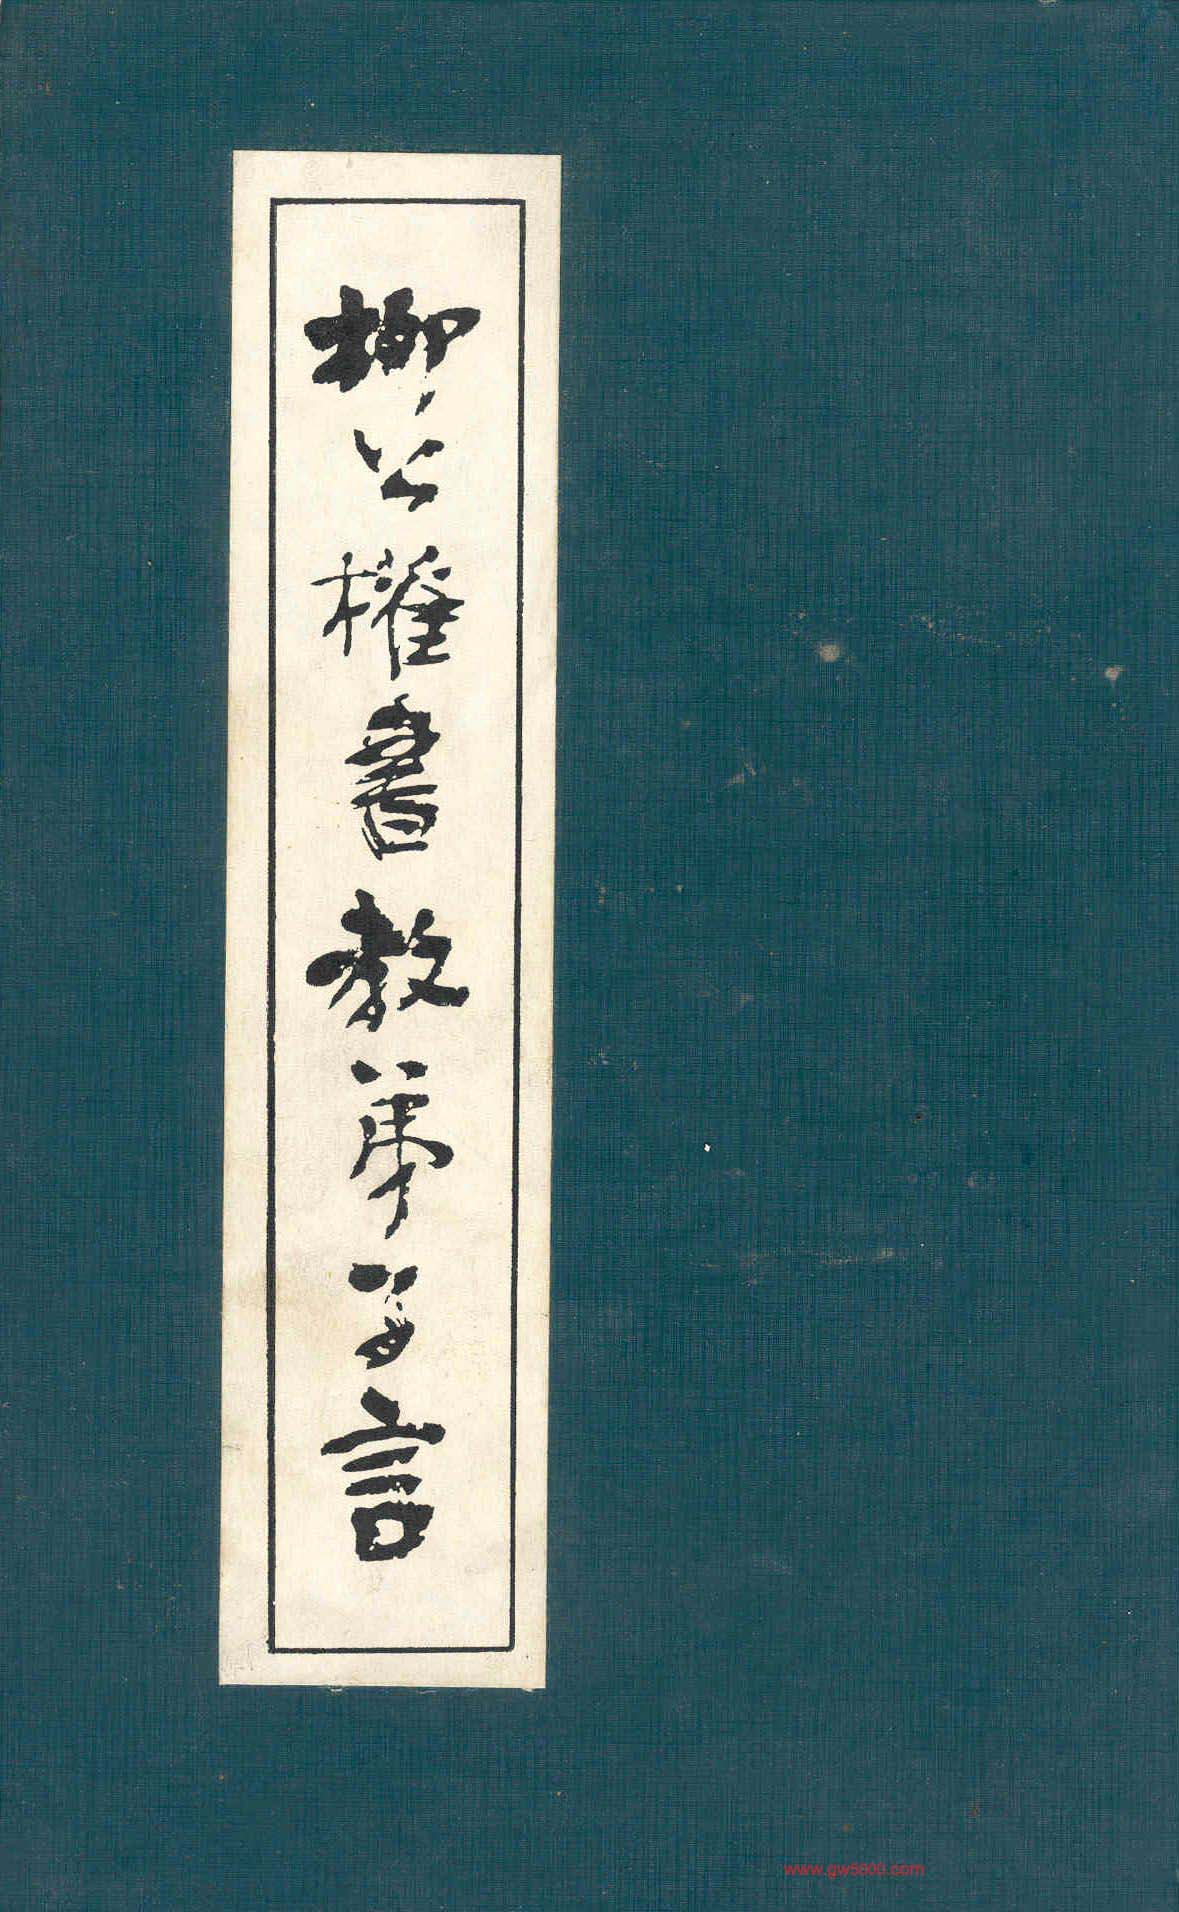 柳公權書教弟子言
www.gw5000.com